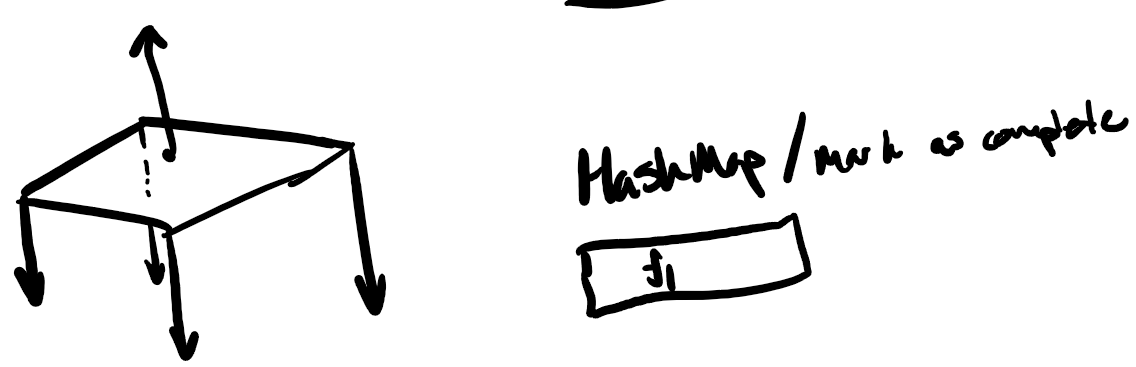 HashMap / mark as complete
f1